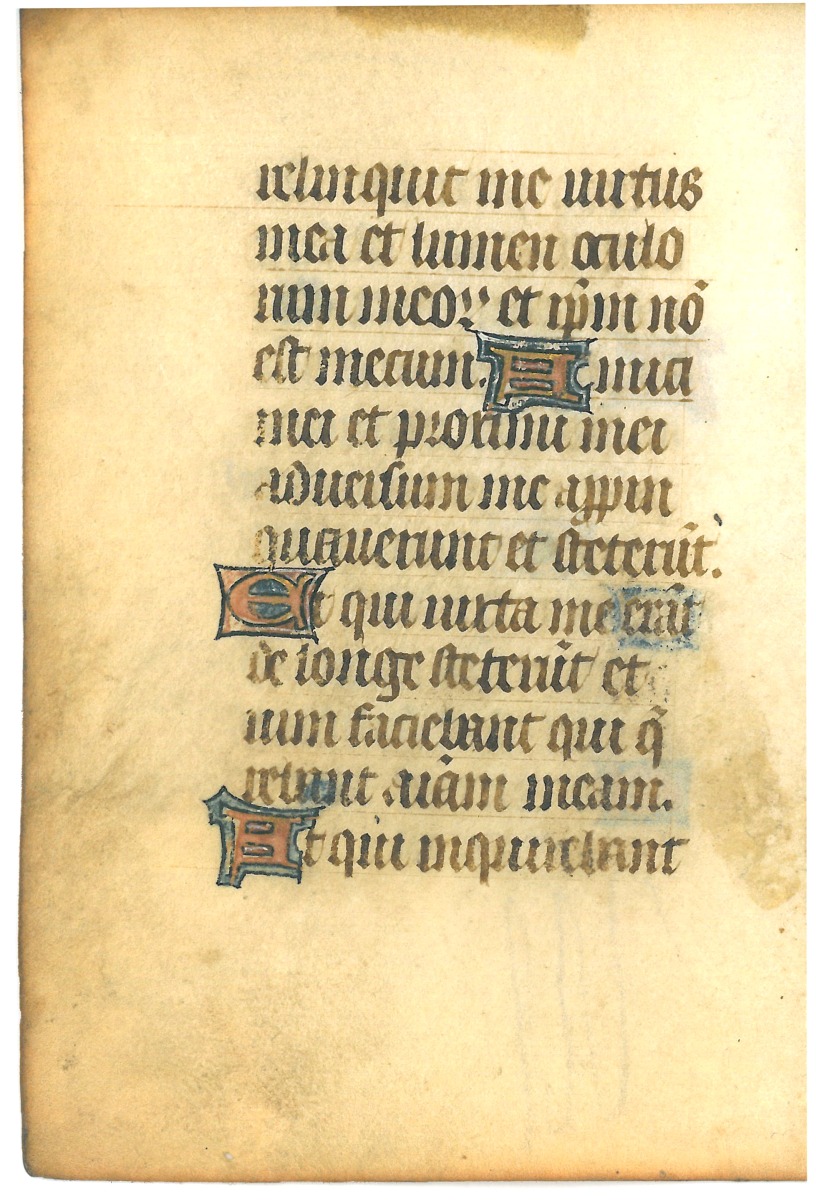 relinquit me uirtus
mea et lumen oculo
rum meoꝝ et ip̄m nō
est mecum. Amici
mei et proximi mei
aduersum me appin
quauerunt et steterūt.
Et qui iuxta me erāt
de longe steterūt et
uim faciebant qui q̄
rebant aīam meam.
At qui inquirebant